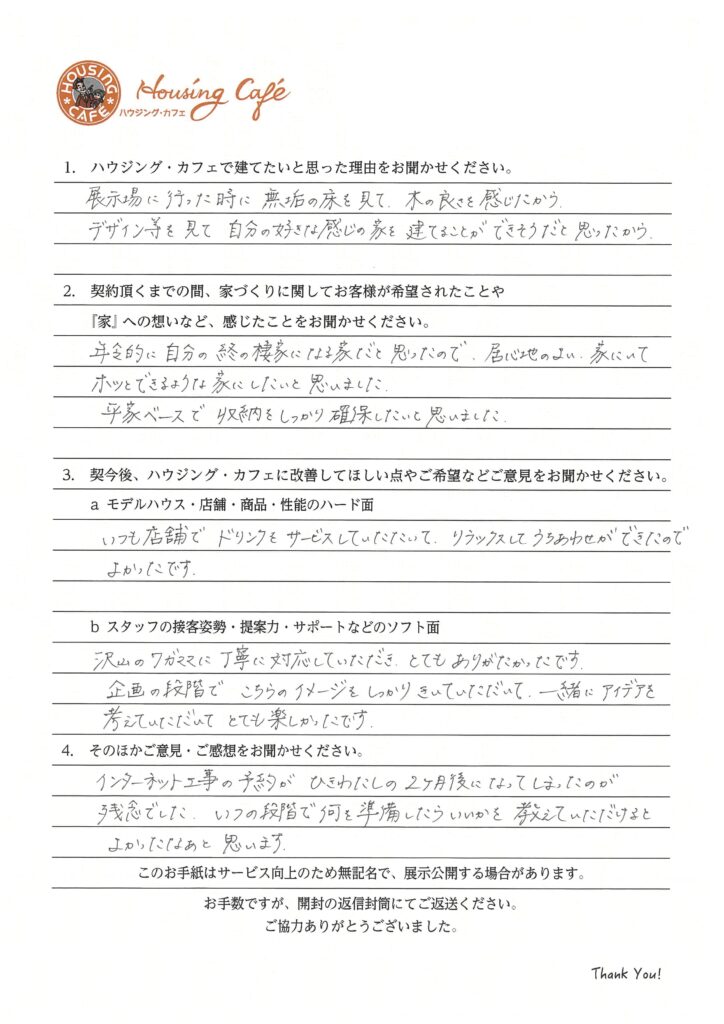 HOUSING CAFÉ
Housing Café
ハウジング・カフェ
1. ハウジング・カフェで建てたいと思った理由をお聞かせください。
展示場に行った時に無垢の床を見て、木の良さを感じたから。
デザイン等を見て自分の好きな感じの家を建てることができそうだと思ったから。
2. 契約頂くまでの間、家づくりに関してお客様が希望されたことや
『家』への想いなど、感じたことをお聞かせください。
年令的に自分の終の棲家になる家だと思ったので、居心地のよい、家にいて
ホッとできるような家にしたいと思いました。
平家ベースで収納をしっかり確保したいと思いました。
3. 契今後、ハウジング・カフェに改善してほしい点やご希望などご意見をお聞かせください。
a モデルハウス・店舗・商品・性能のハード面
いつも店舗でドリンクをサービスしていただいて、リラックスしてうちあわせができたので
よかったです。
b スタッフの接客姿勢・提案力・サポートなどのソフト面
沢山のワガママに丁寧に対応していただき、とてもありがたかったです。
企画の段階でこちらのイメージをしっかりきいていただいて、一緒にアイデアを
考えていただいてとても楽しかったです。
4. そのほかご意見・ご感想をお聞かせください。
インターネット工事の予約がひきわたしの2ヶ月後になってしまったのが
残念でした。いつの段階で何を準備したらいいかを教えていただけると
よかったなあと思います。
このお手紙はサービス向上のため無記名で、展示公開する場合があります。
お手数ですが、開封の返信封筒にてご返送ください。
ご協力ありがとうございました。
Thank You!